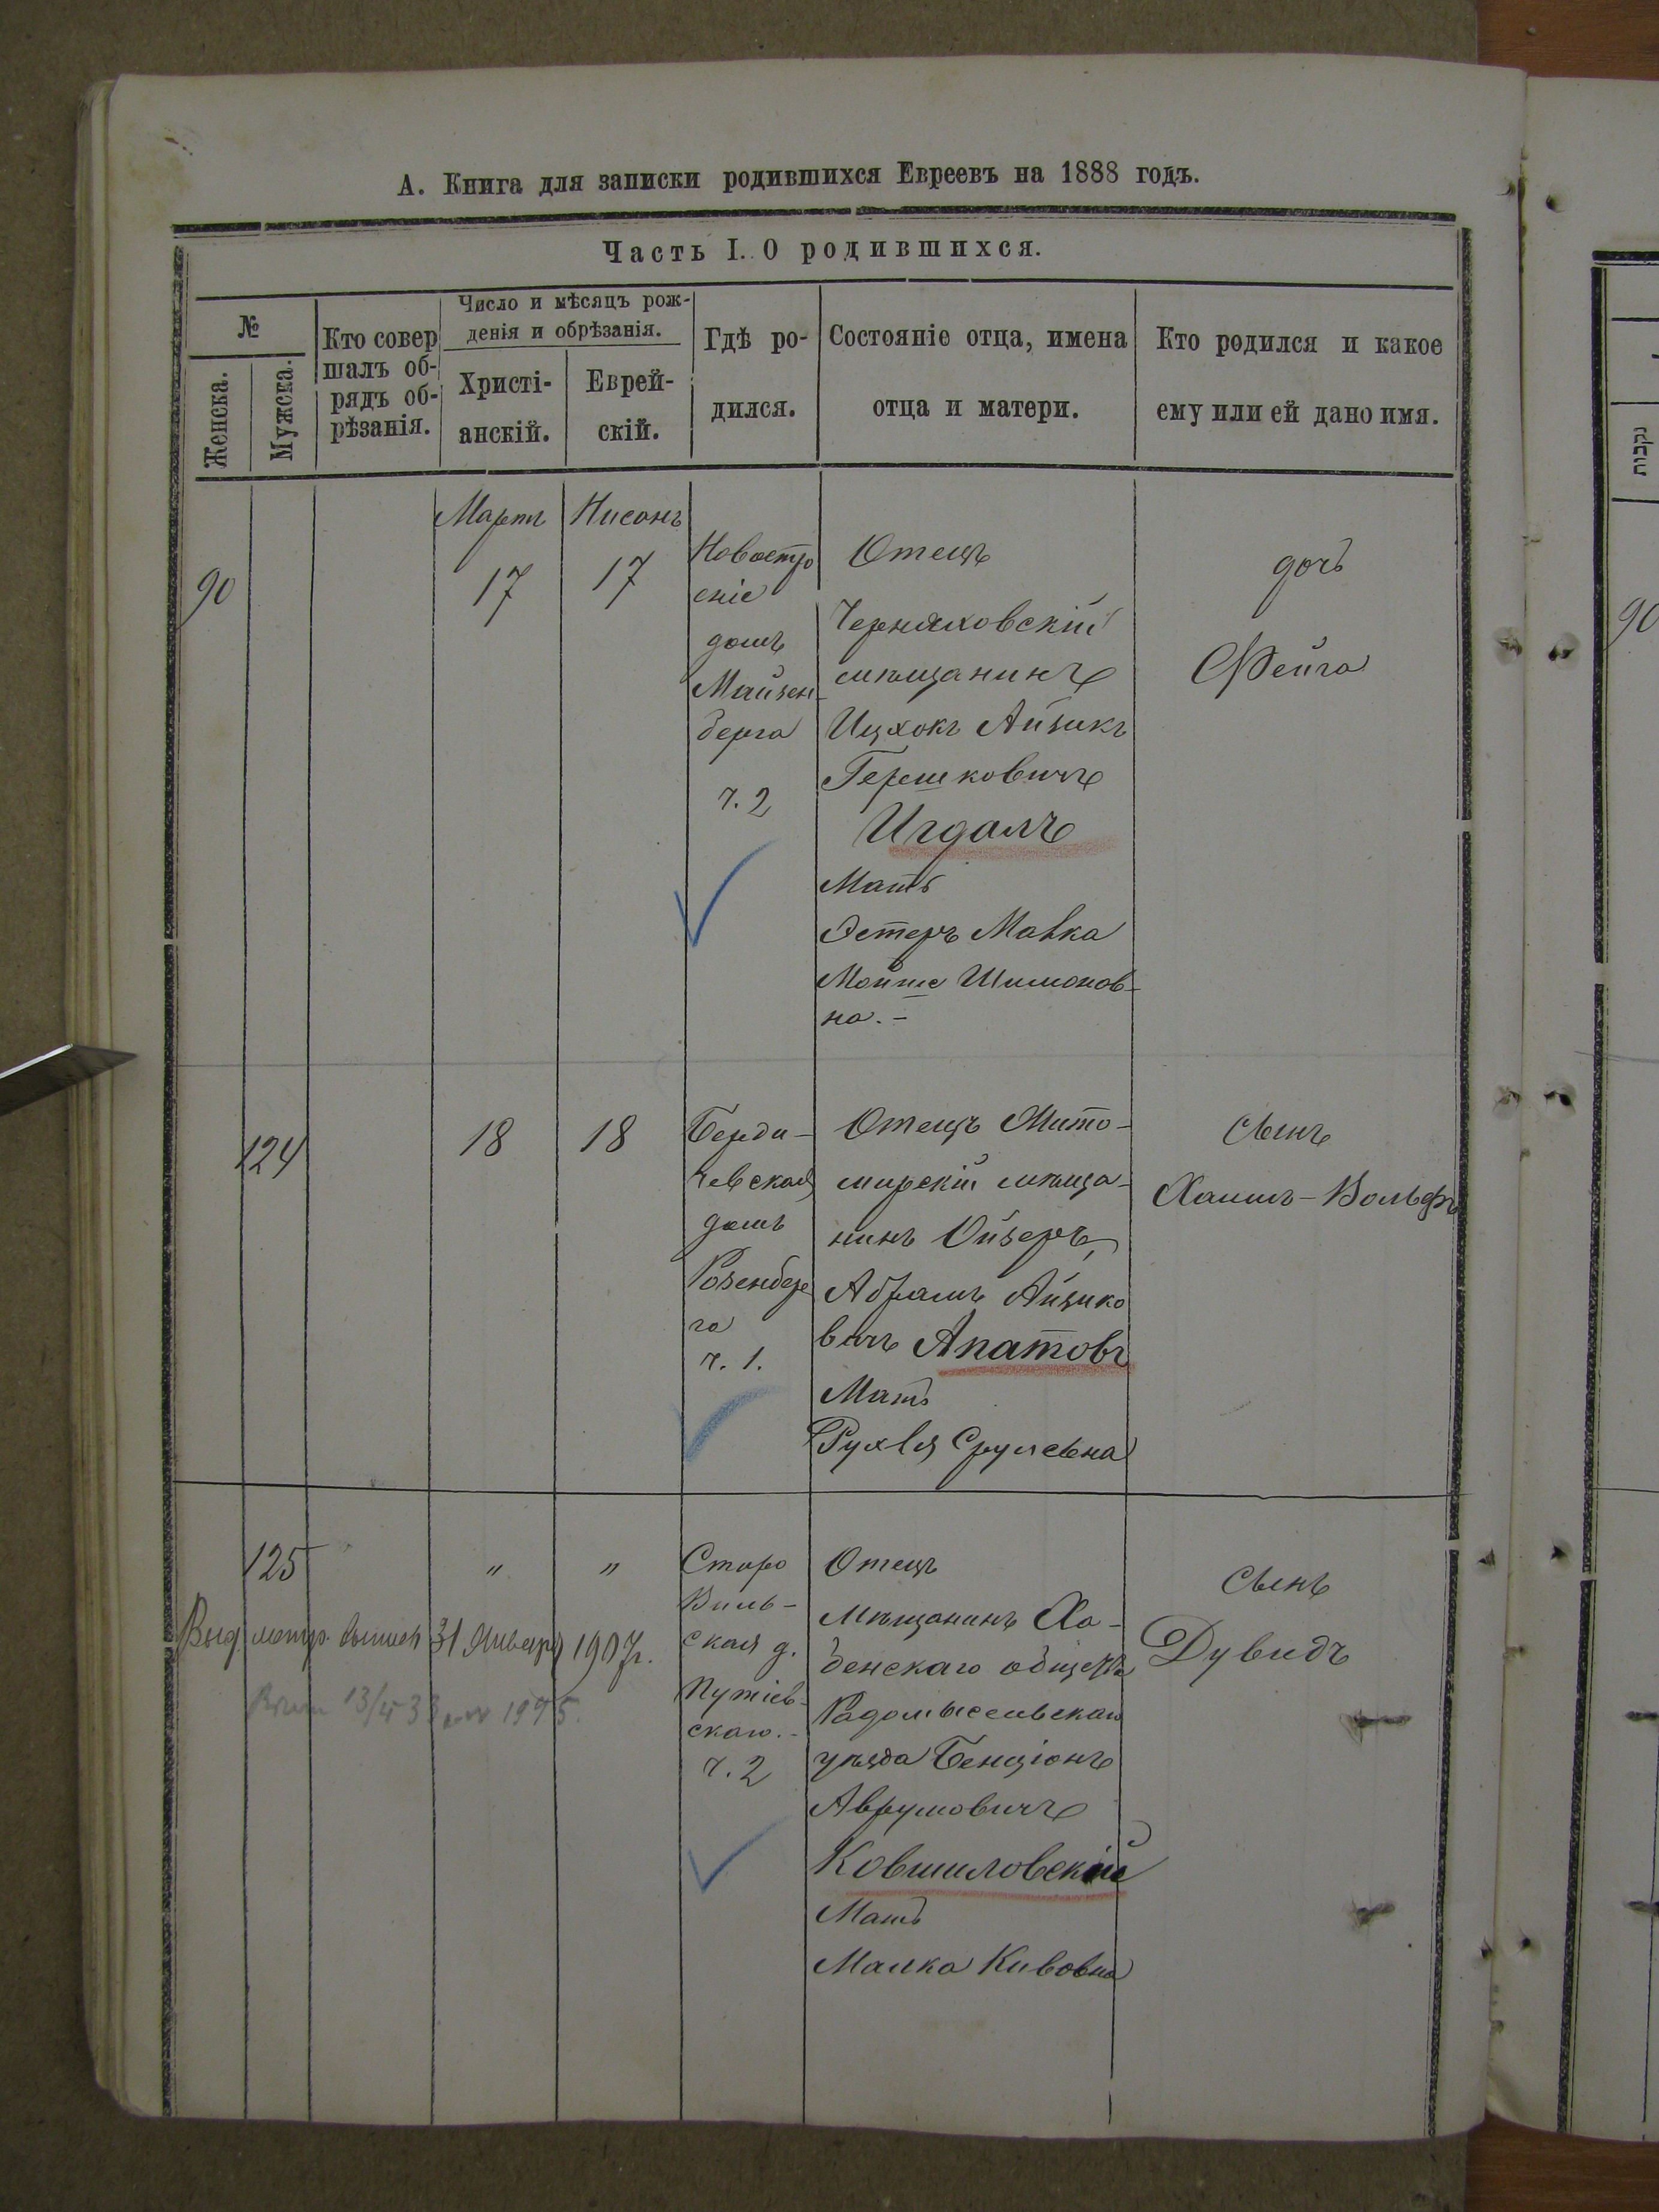 А. Книга для записки родившихся Евреевъ на 1888 годъ.
Часть I. О родившихся.
№
Женска.
Мужска.
Кто совер
шалъ об-
рядъ об-
рѣзанія.
Число и мѣсяцъ рож-
денія и обрѣзанія.
Христі-
анскій.
Еврей-
скій.
Гдѣ ро-
дился.
Состояніе отца, имена
отца и матери.
Кто родился и какое
ему или ей дано имя.
90
Мартъ
17
Нисонъ
17
Новостро
еніе
домъ
Майзен
берга
ч. 2
Отецъ
Черняховскій
мѣщанинъ
Ицхокъ Айзикъ
Гершковичъ
Игдалъ
Мать
Эстеръ Мавка
Мойше Шимонов-
на. -
дочь
Фейга
124
18
18
Берди-
чевская
домъ
Розенбер
га
ч. 1.
Отецъ Жито-
мирскій мѣща-
нинъ Ойзеръ,
Абрамъ Айзико
вичъ Апатовъ
Мать
Рухля Срулевна
сынъ
Хаимъ-Вольфъ
125
"
"
Старо
Виль-
ская д.
Путіев-
скаго.-
ч. 2
Отецъ
Мѣщанинъ Ха-
бенскаго общест
Радомысельскаго
уѣзда Бенціонъ
Аврумовичъ
Ковшиловскій
Мать
Малка Кивовна
сынъ
Дувидъ
Выд метр. выпись 31 Января 1907г.
13/4 33
90
נקבות